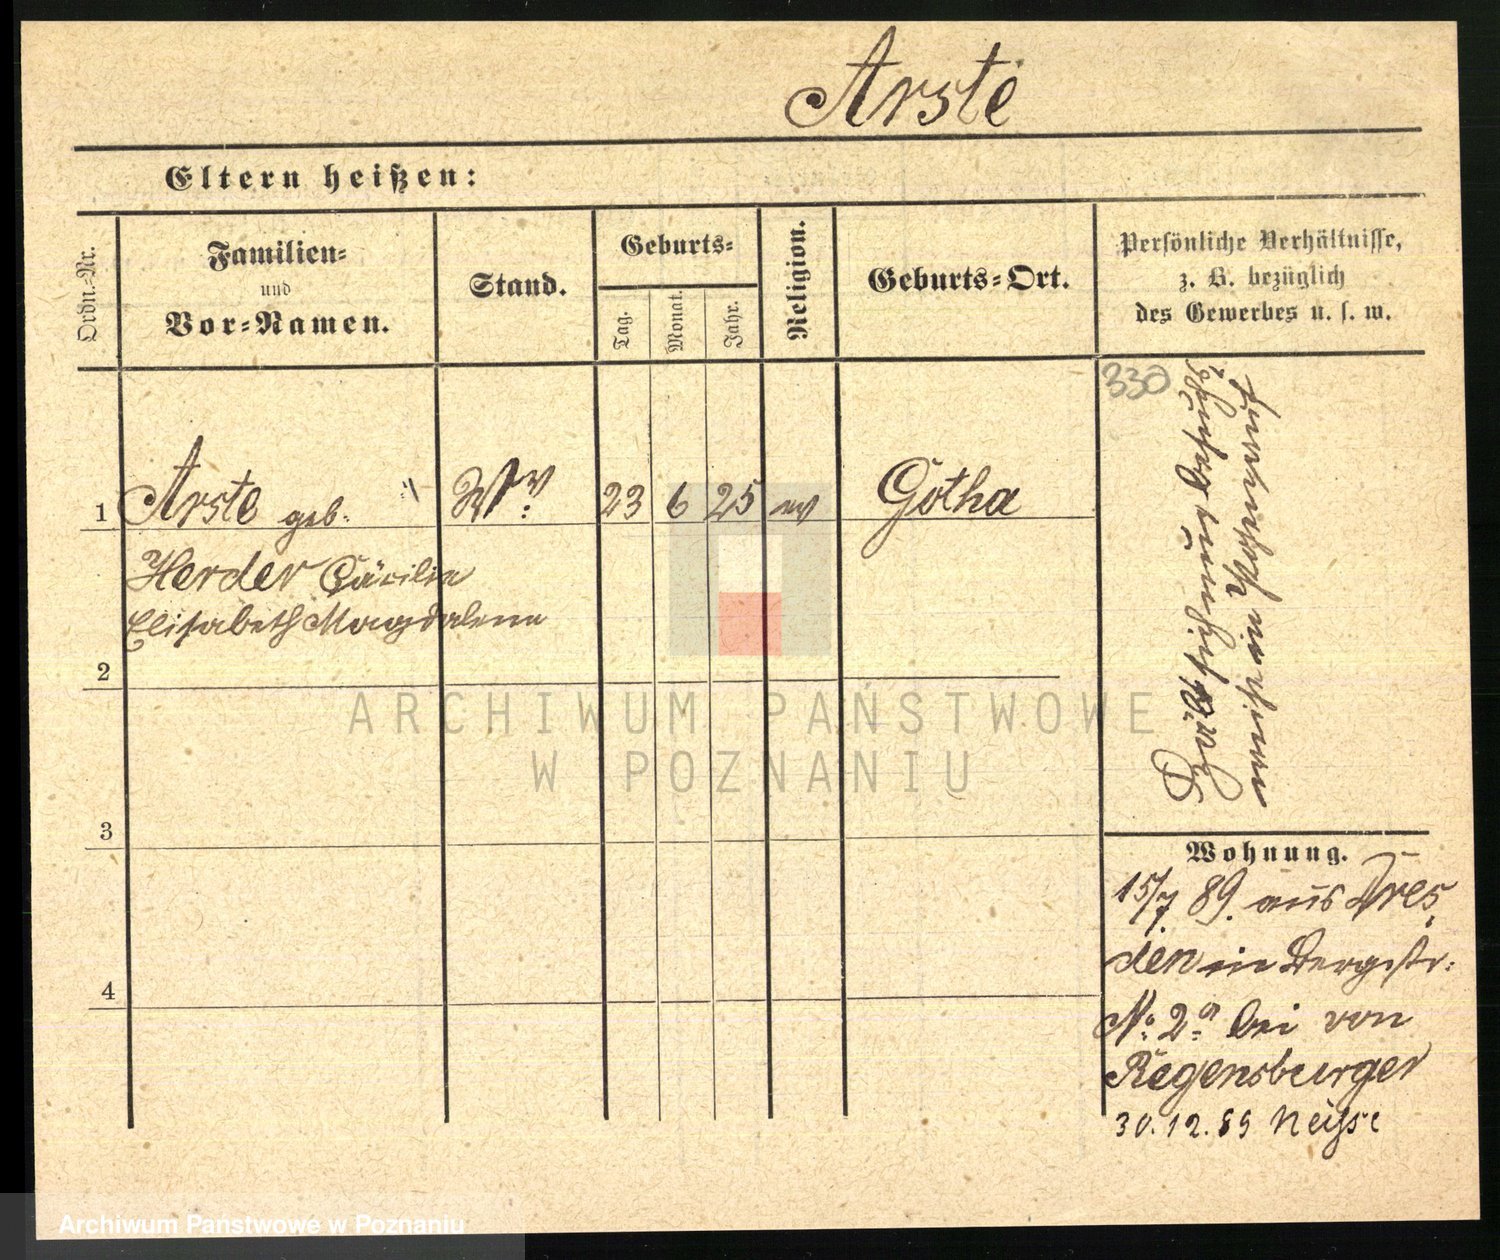 Arste
Eltern heißen:
Ordn.-Nr.
Familien-
und
Vor-Namen.
Stand.
Geburts-
Tag.
Monat.
Jahr.
Religion.
Geburts-Ort.
Persönliche Verhältnisse,
z. B. bezüglich
des Gewerbes u. s. w.
330
1 Arste geb. Ww. 23 6 25 ev Gotha
Herder Cäcilie
Elisabeth Magdalene
2
3
4
Wohnung.
15/7 89. aus Dres
den in Bergstr.
No. 2a bei von
Regensburger
30.12.89 Neisse
ARCHIWUM PAŃSTWOWE
W POZNANIU
Archiwum Państwowe w Poznaniu